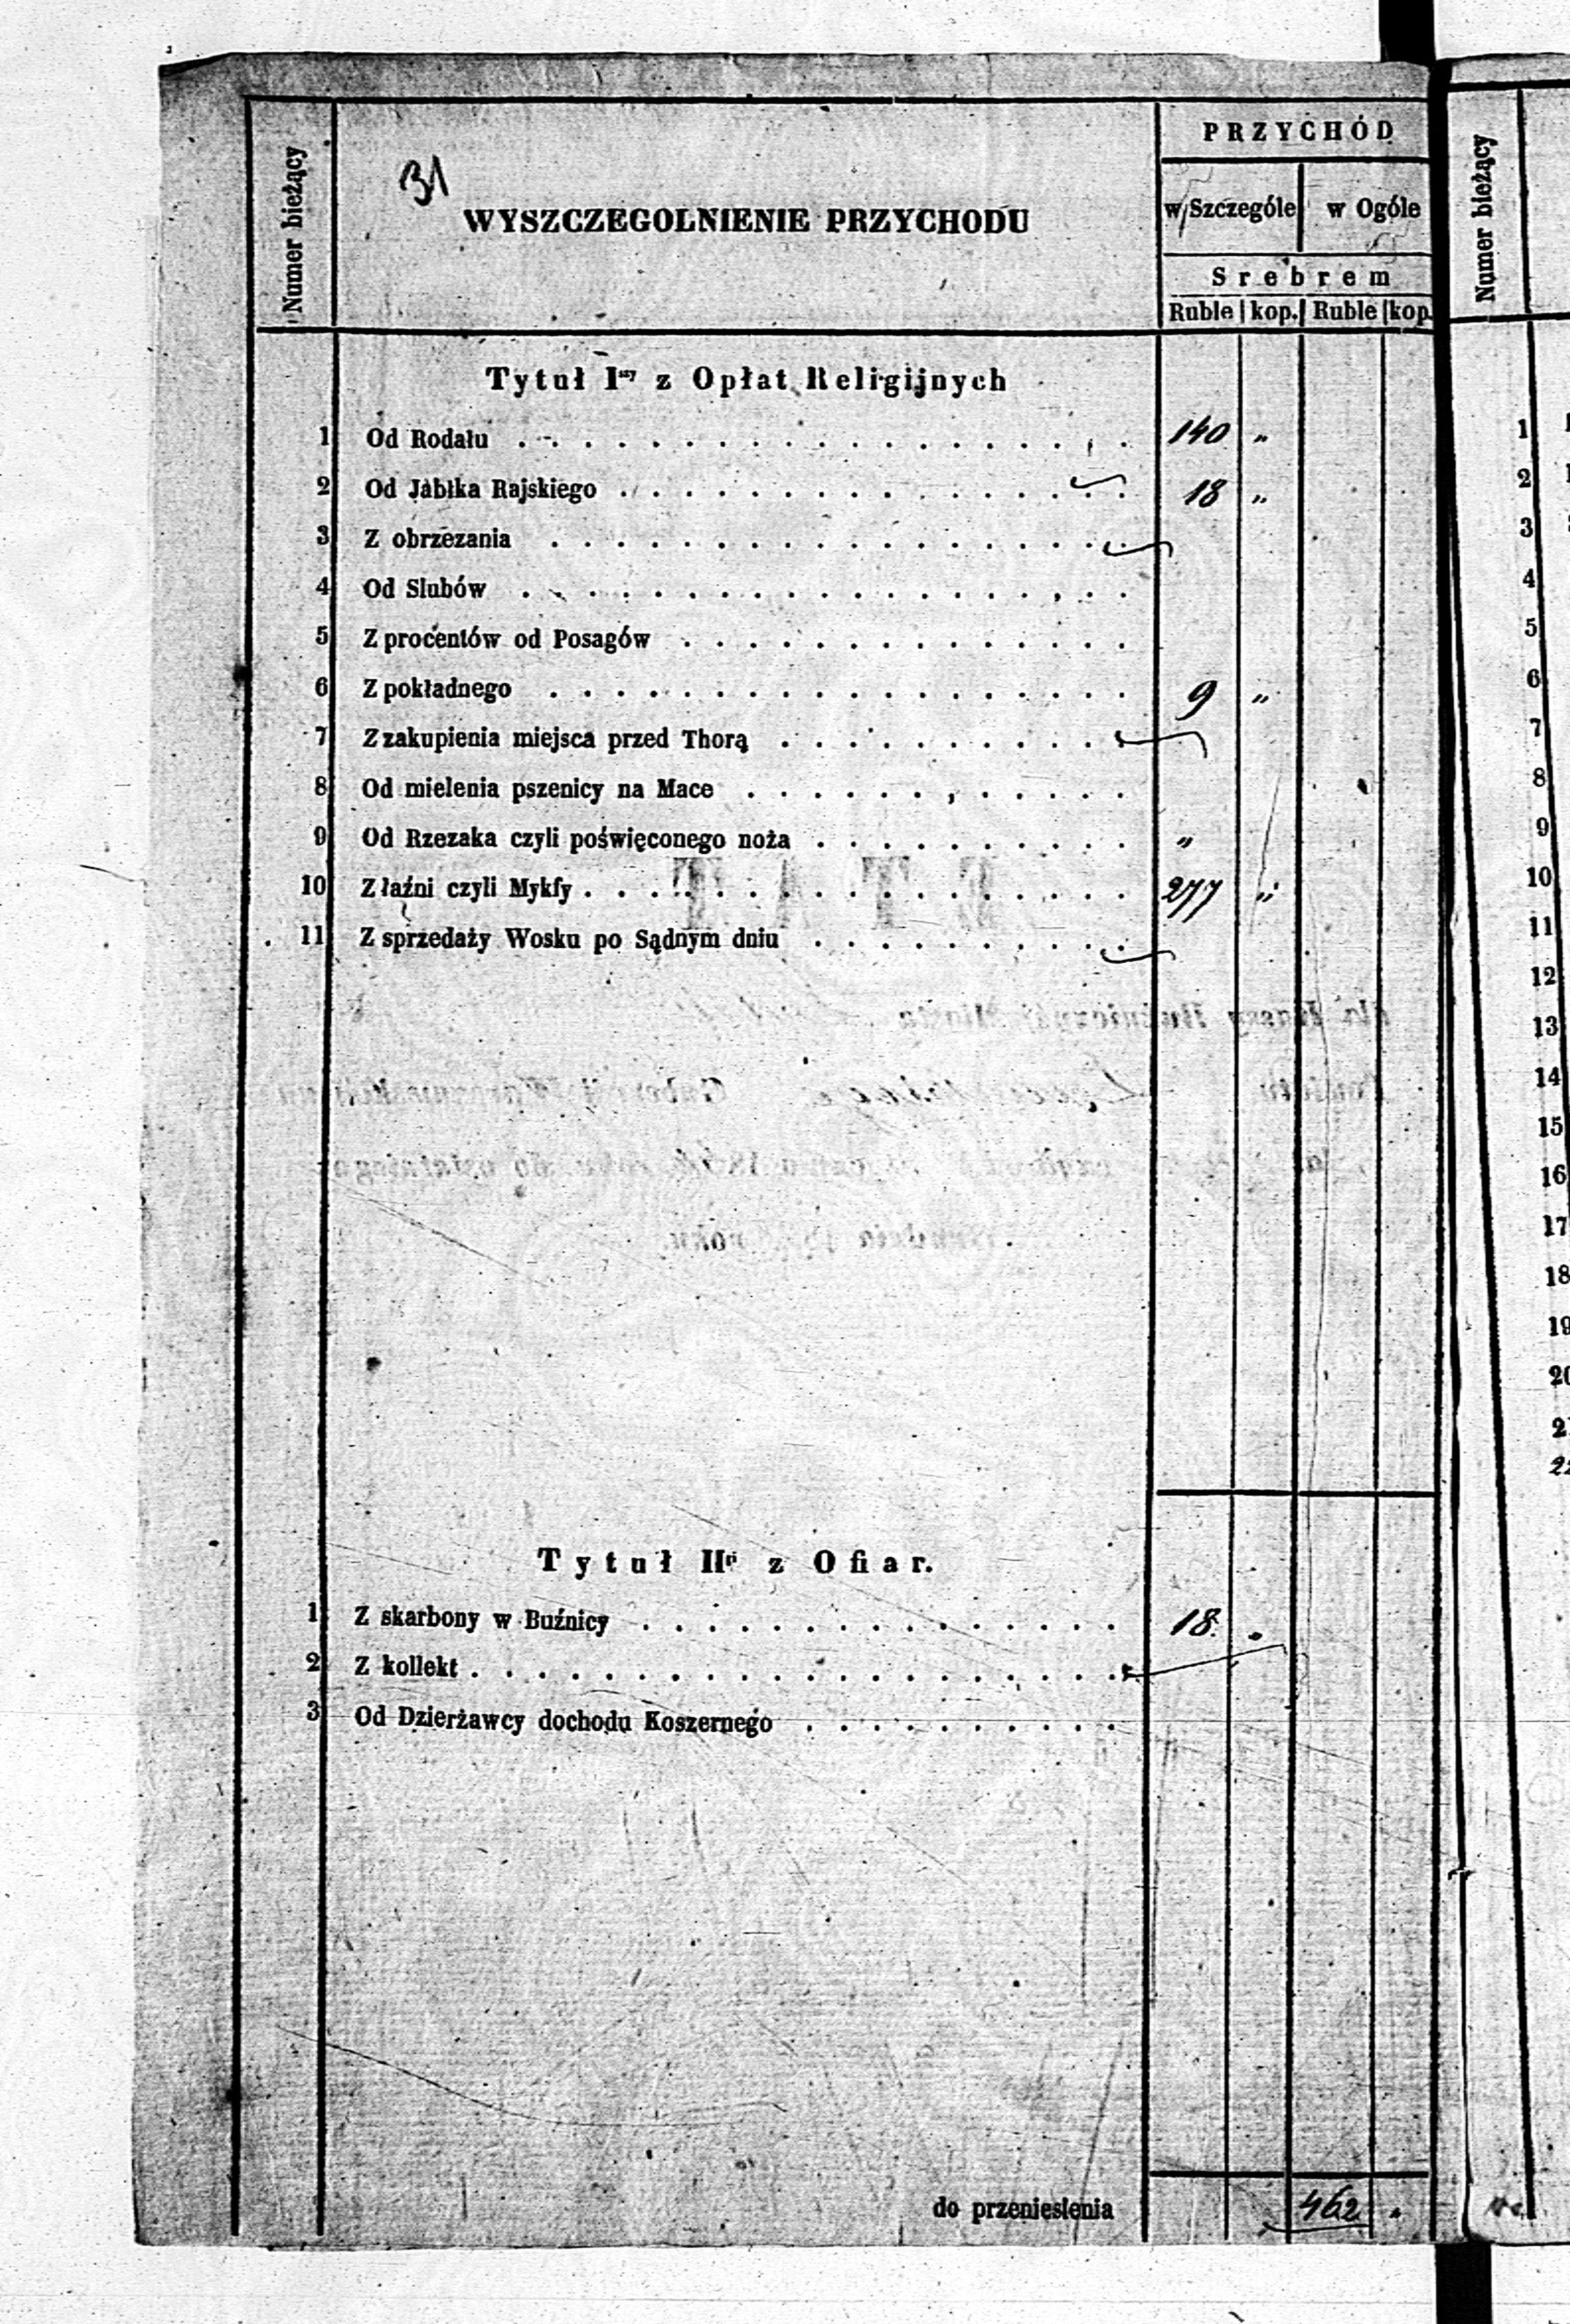 31
Numer bieżący
WYSZCZEGOLNIENIE PRZYCHODU
PRZYCHÓD
w Szczególe w Ogóle
Srebrem
Ruble kop. Ruble kop.
Tytuł Iszy z Opłat Religijnych
1 Od Rodału 140 „
2 Od Jabłka Rajskiego 18 „
3 Z obrzezania
4 Od Slubów
5 Z procentów od Posagów
6 Z pokładnego 9 „
7 Z zakupienia miejsca przed Thorą
8 Od mielenia pszenicy na Mace
9 Od Rzezaka czyli poświęconego noża „
10 Z łaźni czyli Mykfy 277 „
11 Z sprzedaży Wosku po Sądnym dniu
Tytuł IIgi z Ofiar.
1 Z skarbony w Buźnicy 18 „
2 Z kollekt
3 Od Dzierżawcy dochodu Koszernego
do przeniesienia 462 „
Numer bieżący
1
2
3
4
5
6
7
8
9
10
11
12
13
14
15
16
17
18
19
20